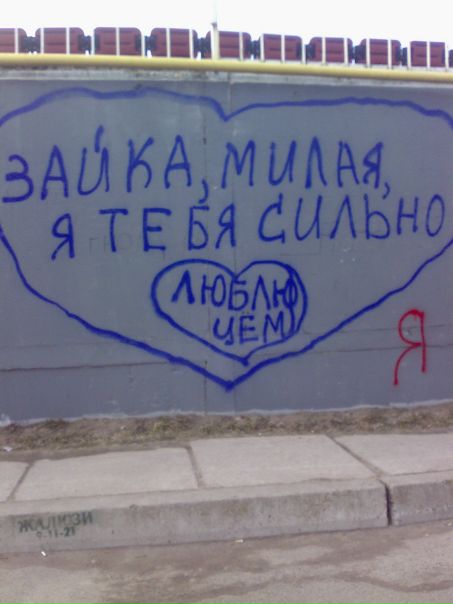 ЗАЙКА, МИЛАЯ,
Я ТЕБЯ СИЛЬНО
ЛЮБЛЮ
ЦЕМ
Я
ЖАЛЮЗИ